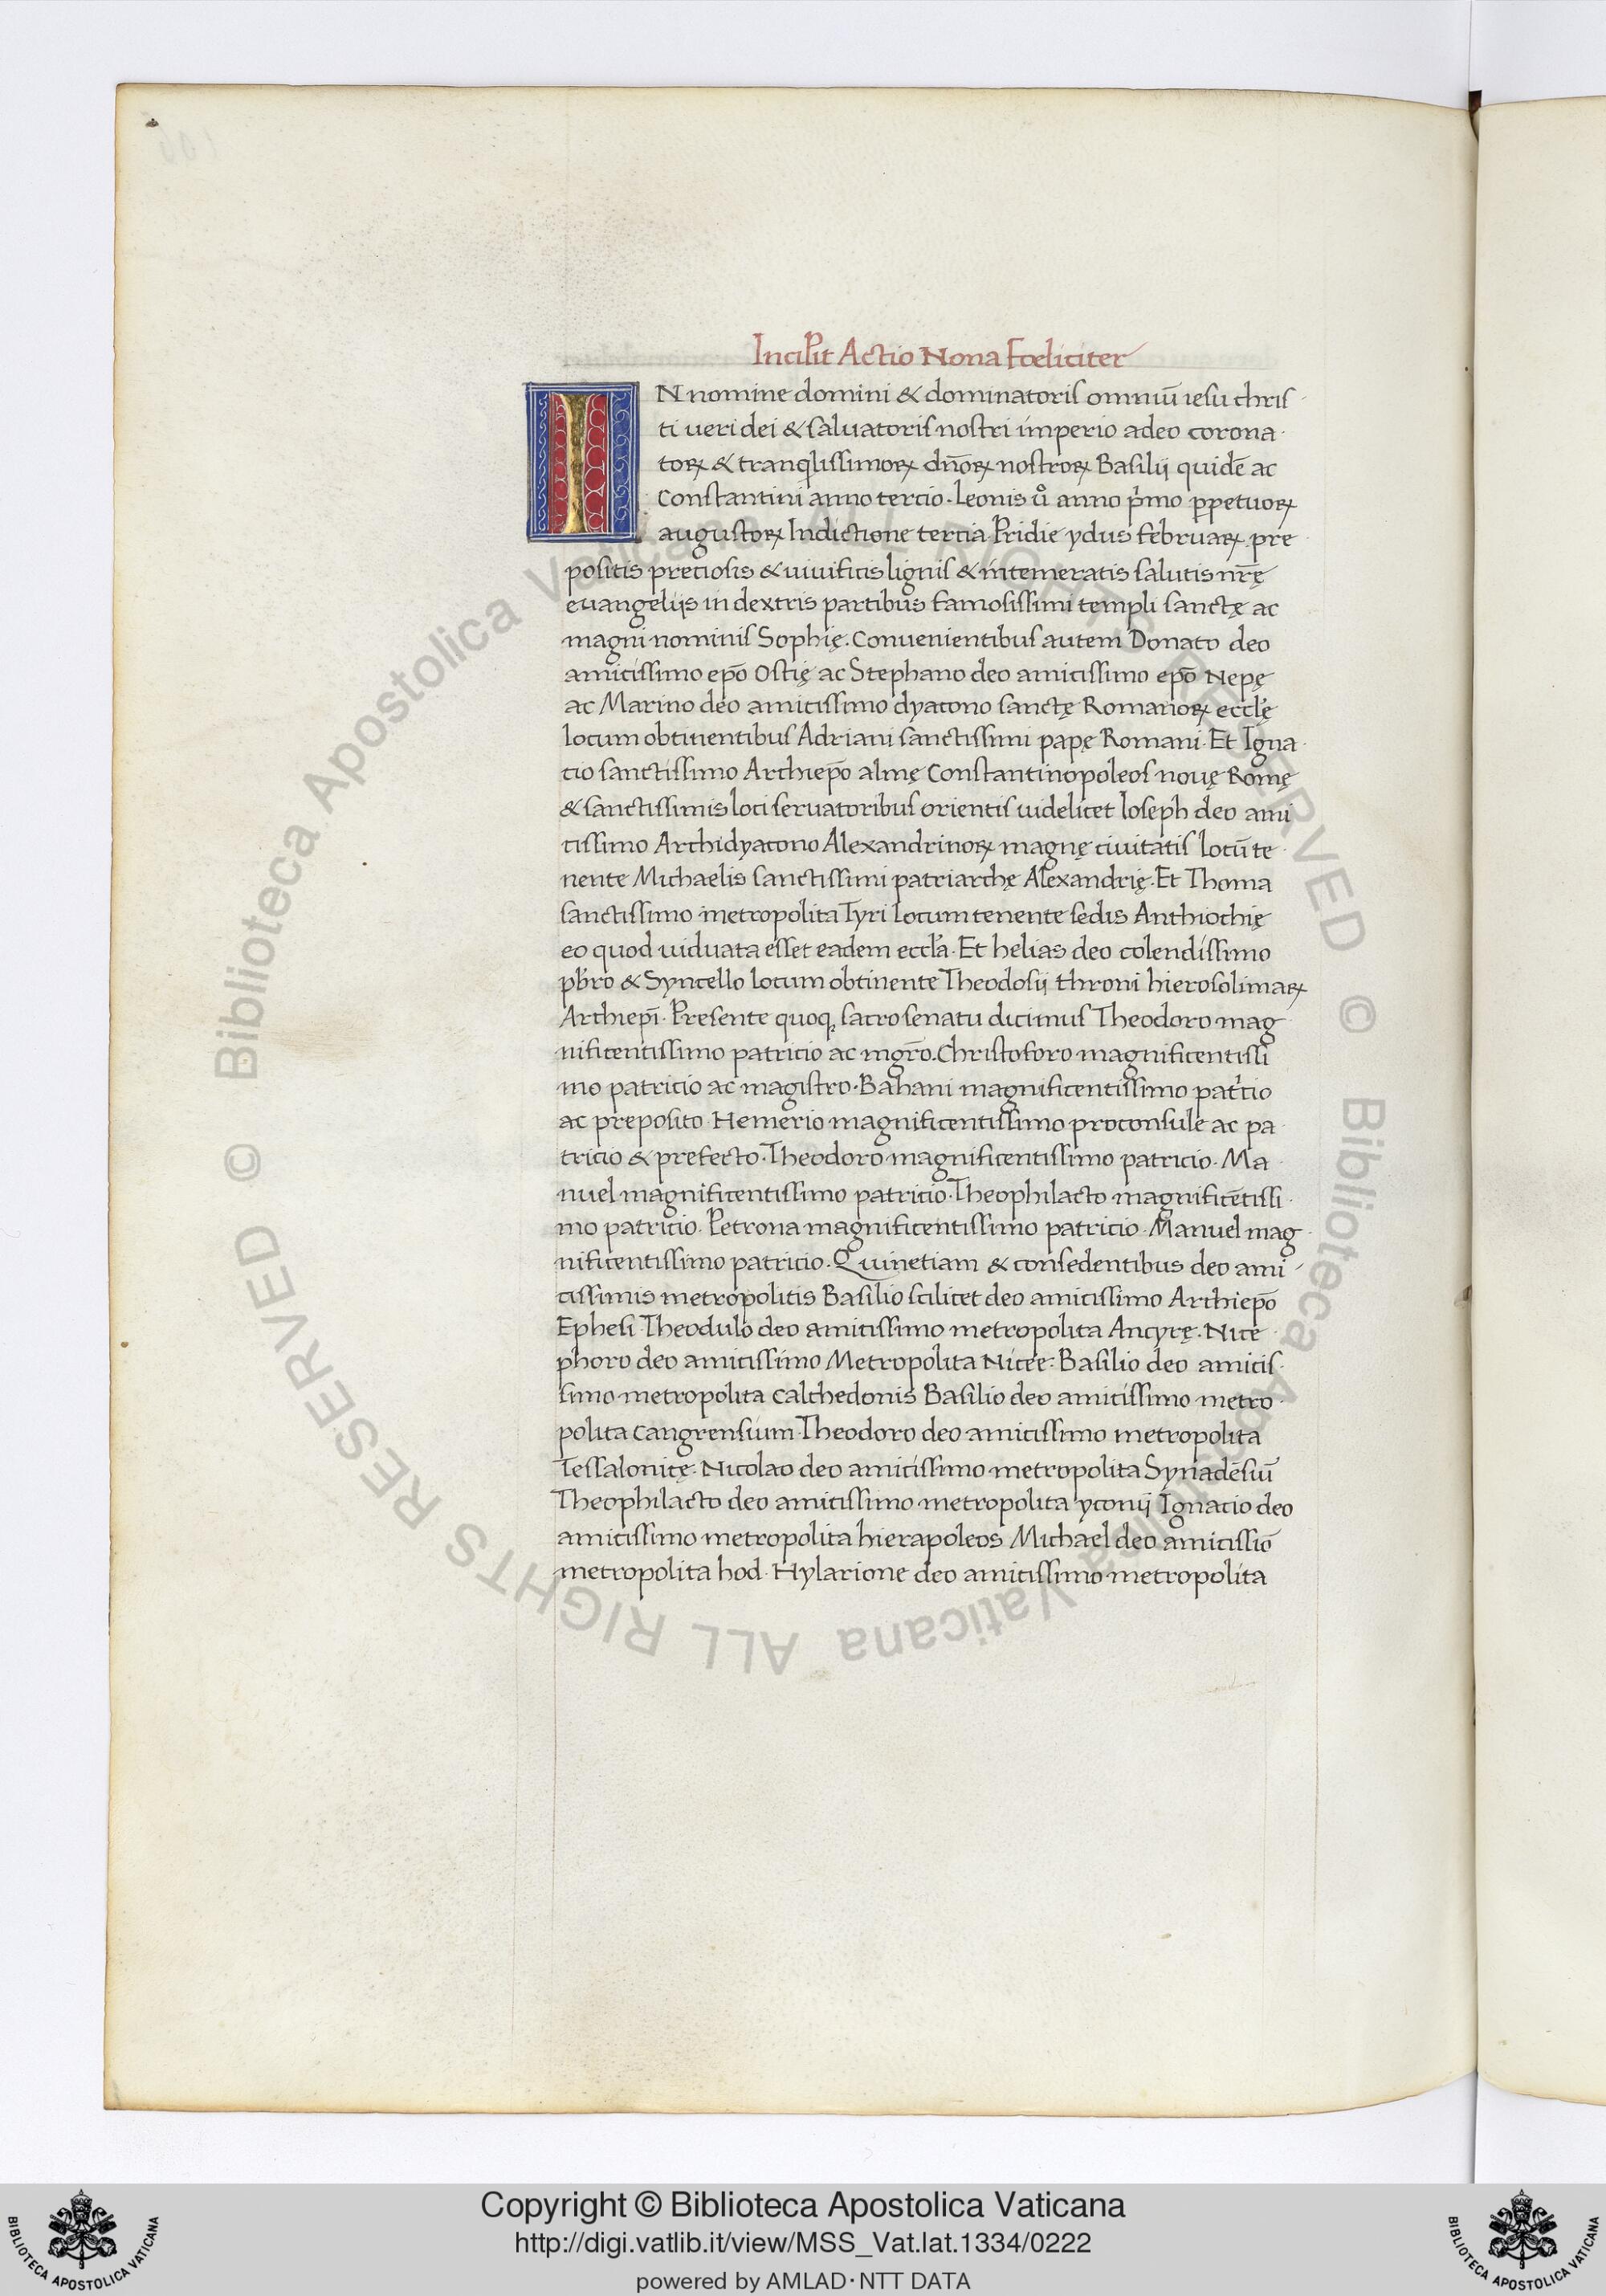 Incipit Actio Nona Foeliciter
IN nomine domini & dominatoris omniū iesu chris
ti ueri dei & saluatoris nostri imperio a deo corona
toꝝ & tranqlissimoꝝ dn̄oꝝ nostroꝝ Basilij quidē ac
Constantini anno tercio. Leonis uͦ anno pͥmo ꝑpetuoꝝ
augustoꝝ Indictione tercia Pridie ydus februaꝝ. pre
positis preciosis & uiuificis lignis & intemeratis salutis nr̄ę
euangelijs in dextris partibus famosissimi templi sanctę ac
magni nominis Sophię. Conuenientibus autem Donato deo
amicissimo ep̄o Ostię ac Stephano deo amicissimo ep̄o Nepę
ac Marino deo amicissimo dyacono sanctę Romanoꝝ eccl̓ę
locum obtinentibus Adriani sanctissimi papę Romani. Et Igna
cio sanctissimo Archiep̄o almę Constantinopoleos nouę Romę
& sanctissimis loci seruatoribus orientis uidelicet Ioseph deo ami
cissimo Archidyacono Alexandrinoꝝ magnę ciuitatis locū te
nente Michaelis sanctissimi patriarchę Alexandrię. Et Thoma
sanctissimo metropolita Tyri locum tenente sedis Anthiochię
eo quod uiduata esset eadem eccl̓a. Et helias deo colendissimo
pb̓ro & Syncello locum obtinente Theodosij throni hierosolimaꝝ
Archiep̄i. Presente quoqꝫ sacro senatu dicimus Theodoro mag
nificentissimo patricio ac mgr̄o. Christoforo magnificentissi
mo patricio ac magistro. Bahani magnificentissimo patͥcio
ac preposito. Hemerio magnificentissimo proconsule ac pa
tricio & prefecto. Theodoro magnificentissimo patricio. Ma
nuel magnificentissimo patricio. Theophilacto magnificētissi
mo patricio. Petrona magnificentissimo patricio. Manuel mag
nificentissimo patricio. Quinetiam & consedentibus deo ami
cissimis metropolitis Basilio scilicet deo amicissimo Archiep̄o
Ephesi. Theodulo deo amicissimo metropolita Ancyrę. Nice
phoro deo amicissimo Metropolita Nicee. Basilio deo amicis
simo metropolita Calchedonis Basilio deo amicissimo metro
polita Cangrensium. Theodoro deo amicissimo metropolita
Tessalonicę. Nicolao deo amicissimo metropolita Synadēsiū
Theophilacto deo amicissimo metropolita yconij Ignacio deo
amicissimo metropolita hierapoleos. Michael deo amicissīo
metropolita hod. Hylarione deo amicissimo metropolita
© Biblioteca Apostolica Vaticana ALL RIGHTS RESERVED
© Biblioteca Apostolica Vaticana ALL RIGHTS RESERVED
Copyright © Biblioteca Apostolica Vaticana
http://digi.vatlib.it/view/MSS_Vat.lat.1334/0222
powered by AMLAD·NTT DATA
BIBLIOTECA APOSTOLICA VATICANA
BIBLIOTECA APOSTOLICA VATICANA